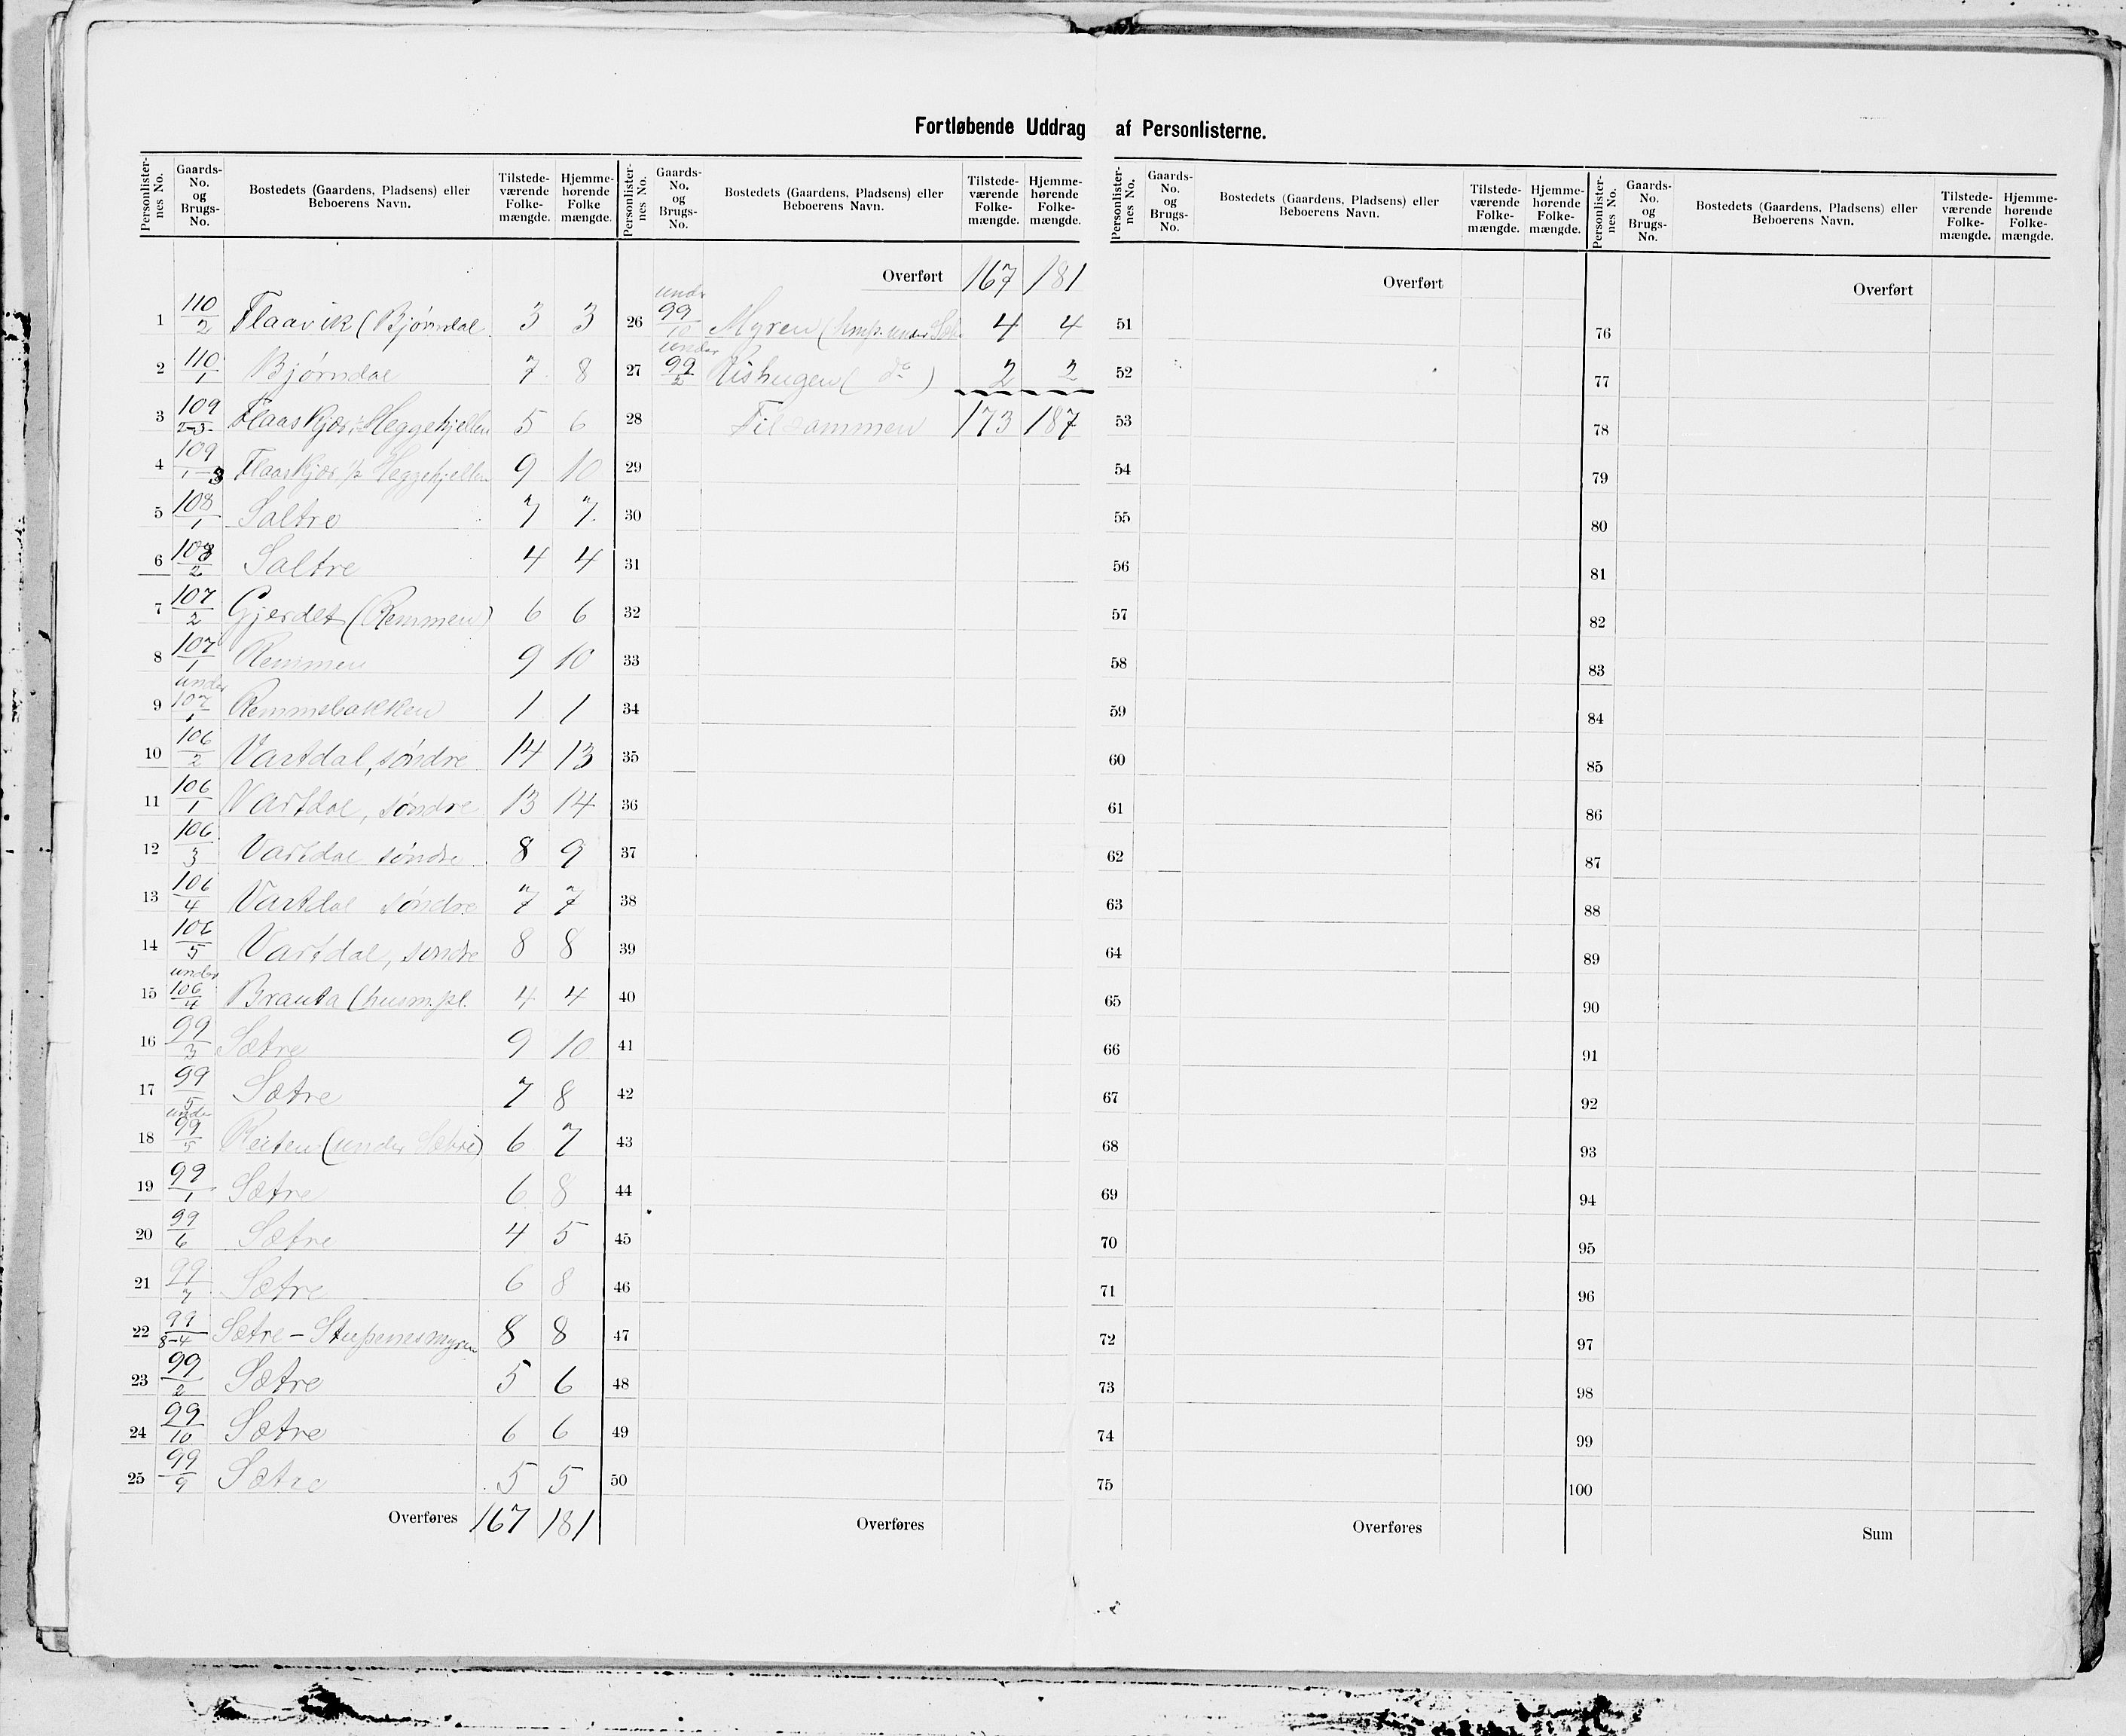 Fortløbende Uddrag af Personlisterne.
Personlister-nes No. Gaards-No. og Brugs-No. Bostedets (Gaardens, Pladsens) eller Beboerens Navn. Tilstede-værende Folke-mængde. Hjemme-hørende Folke mængde.
1 110/2 Flaavik (Bjørndal 3 3
2 110/1 Bjørndal 7 8
3 109/2-3 Flaaskjær, Heggekjellen 5 6
4 109/1-3 Flaaskjær Heggekjellen 9 10
5 108/1 Saltre 7 7
6 108/2 Saltre 4 4
7 107/2 Gjerdet (Remmen) 6 6
8 107/1 Remmen 9 10
9 under 107/1 Remmebakken 1 1
10 106/2 Vartdal, søndre 14 13
11 106/1 Vartdal, søndre 13 14
12 106/3 Vartdal søndre 8 9
13 106/4 Vartdal søndre 7 7
14 106/5 Vartdal, søndre 8 8
15 under 106/4 Brauta (husm.pl. 4 4
16 99/3 Sætre 9 10
17 99/5 Sætre 7 8
18 under 99/5 Reiten (under Sætre) 6 7
19 99/1 Sætre 6 8
20 99/6 Sætre 4 5
21 99/7 Sætre 6 8
22 99/8-4 Sætre - Stupenesmyren 8 8
23 99/2 Sætre 5 6
24 99/10 Sætre 6 6
25 99/9 Sætre 5 5
Overføres 167 181
Personlister-nes No. Gaards-No. og Brugs-No. Bostedets (Gaardens, Pladsens) eller Beboerens Navn. Tilstede-værende Folke-mængde. Hjemme-hørende Folke-mængde.
Overført 167 181
26 under 99/10 Myren ( under 4 4
27 under 99/2 ( do ) 2 2
28 Tilsammen 173 187
29
30
31
32
33
34
35
36
37
38
39
40
41
42
43
44
45
46
47
48
49
50
Overføres
Personlister-nes No. Gaards-No. og Brugs-No. Bostedets (Gaardens, Pladsens) eller Beboerens Navn. Tilstede-værende Folke-mængde. Hjemme-hørende Folke-mængde.
Overført
51
52
53
54
55
56
57
58
59
60
61
62
63
64
65
66
67
68
69
70
71
72
73
74
75
Overføres
Personlister-nes No. Gaards-No. og Brugs-No. Bostedets (Gaardens, Pladsens) eller Beboerens Navn. Tilstede-værende Folke-mængde. Hjemme-hørende Folke-mængde.
Overført
76
77
78
79
80
81
82
83
84
85
86
87
88
89
90
91
92
93
94
95
96
97
98
99
100
Sum